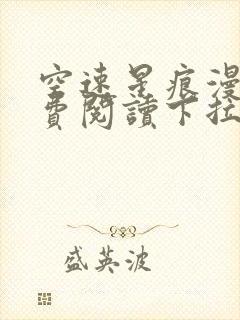 空速星痕漫
費閱讀下拉
盛英波